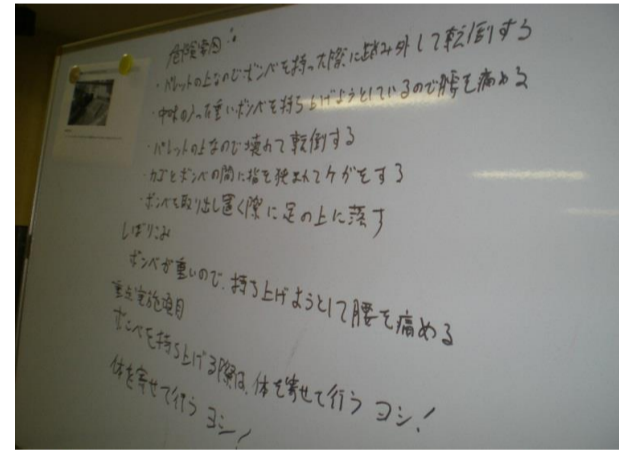 危険要因:
・パレットの上なのでボンベを持った際に踏み外して転倒する
・中味の入った重いボンベを持ち上げようとしているので腰を痛める
・パレットの上なので壊れて転倒する
・カゴとボンベの間に指を挟まれてケガをする
・ボンベを取り出し置く際に足の上に落す
しぼりこみ
ボンベが重いので、持ち上げようとして腰を痛める
重点実施項目
ボンベを持ち上げる際は、体を寄せて行う ヨシ!
体を寄せて行う ヨシ!